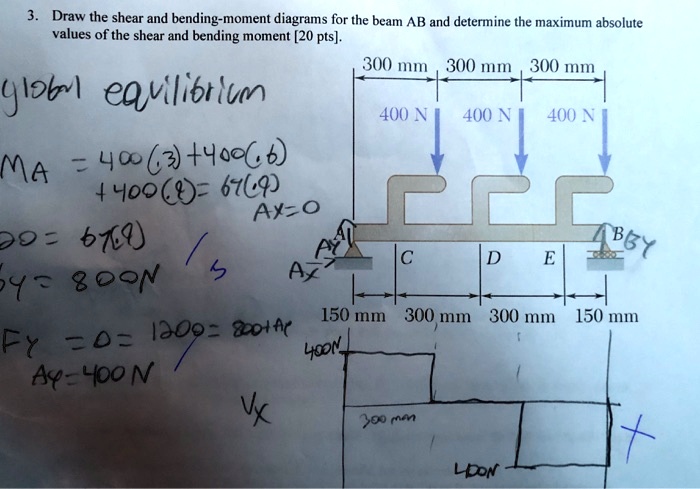 3. Draw the shear and bending-moment diagrams for the beam AB and determine the maximum absolute
values of the shear and bending moment [20 pts].
300 mm 300 mm 300 mm
global equilibrium
400 N 400 N 400 N
MA = 400(.3)+400(.6)
+400(.9)= By(.9)
Ax=0
By(.9)
By = 800N
5
Ay
A
Ax
B By
C D E
150 mm 300 mm 300 mm 150 mm
Fy = 0 = 1200 = 800+Ay
400N
Ay=400N
Vx
300 mm
400N